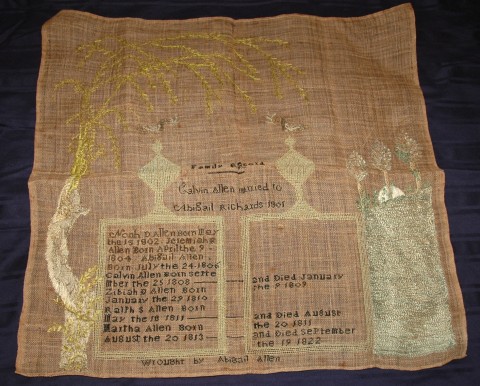 Calvin Allen maried to
Abigail Richards 1801
Noah D Allen Born May
the 15 1802 Jeremiah
Allen Born April the 9
1804 Abigail Allen
Born July the 24 1806
Calvin Allen Born Septe
mber the 25 1808
Zibiah D Allen Born
January the 29 1810
Ralph S Allen Born
May the 18 1811
Martha Allen Born
August the 20 1813
and Died January
the 9 1809
and Died August
the 20 1811
and Died September
the 19 1822
Wrought by Abigail Allen